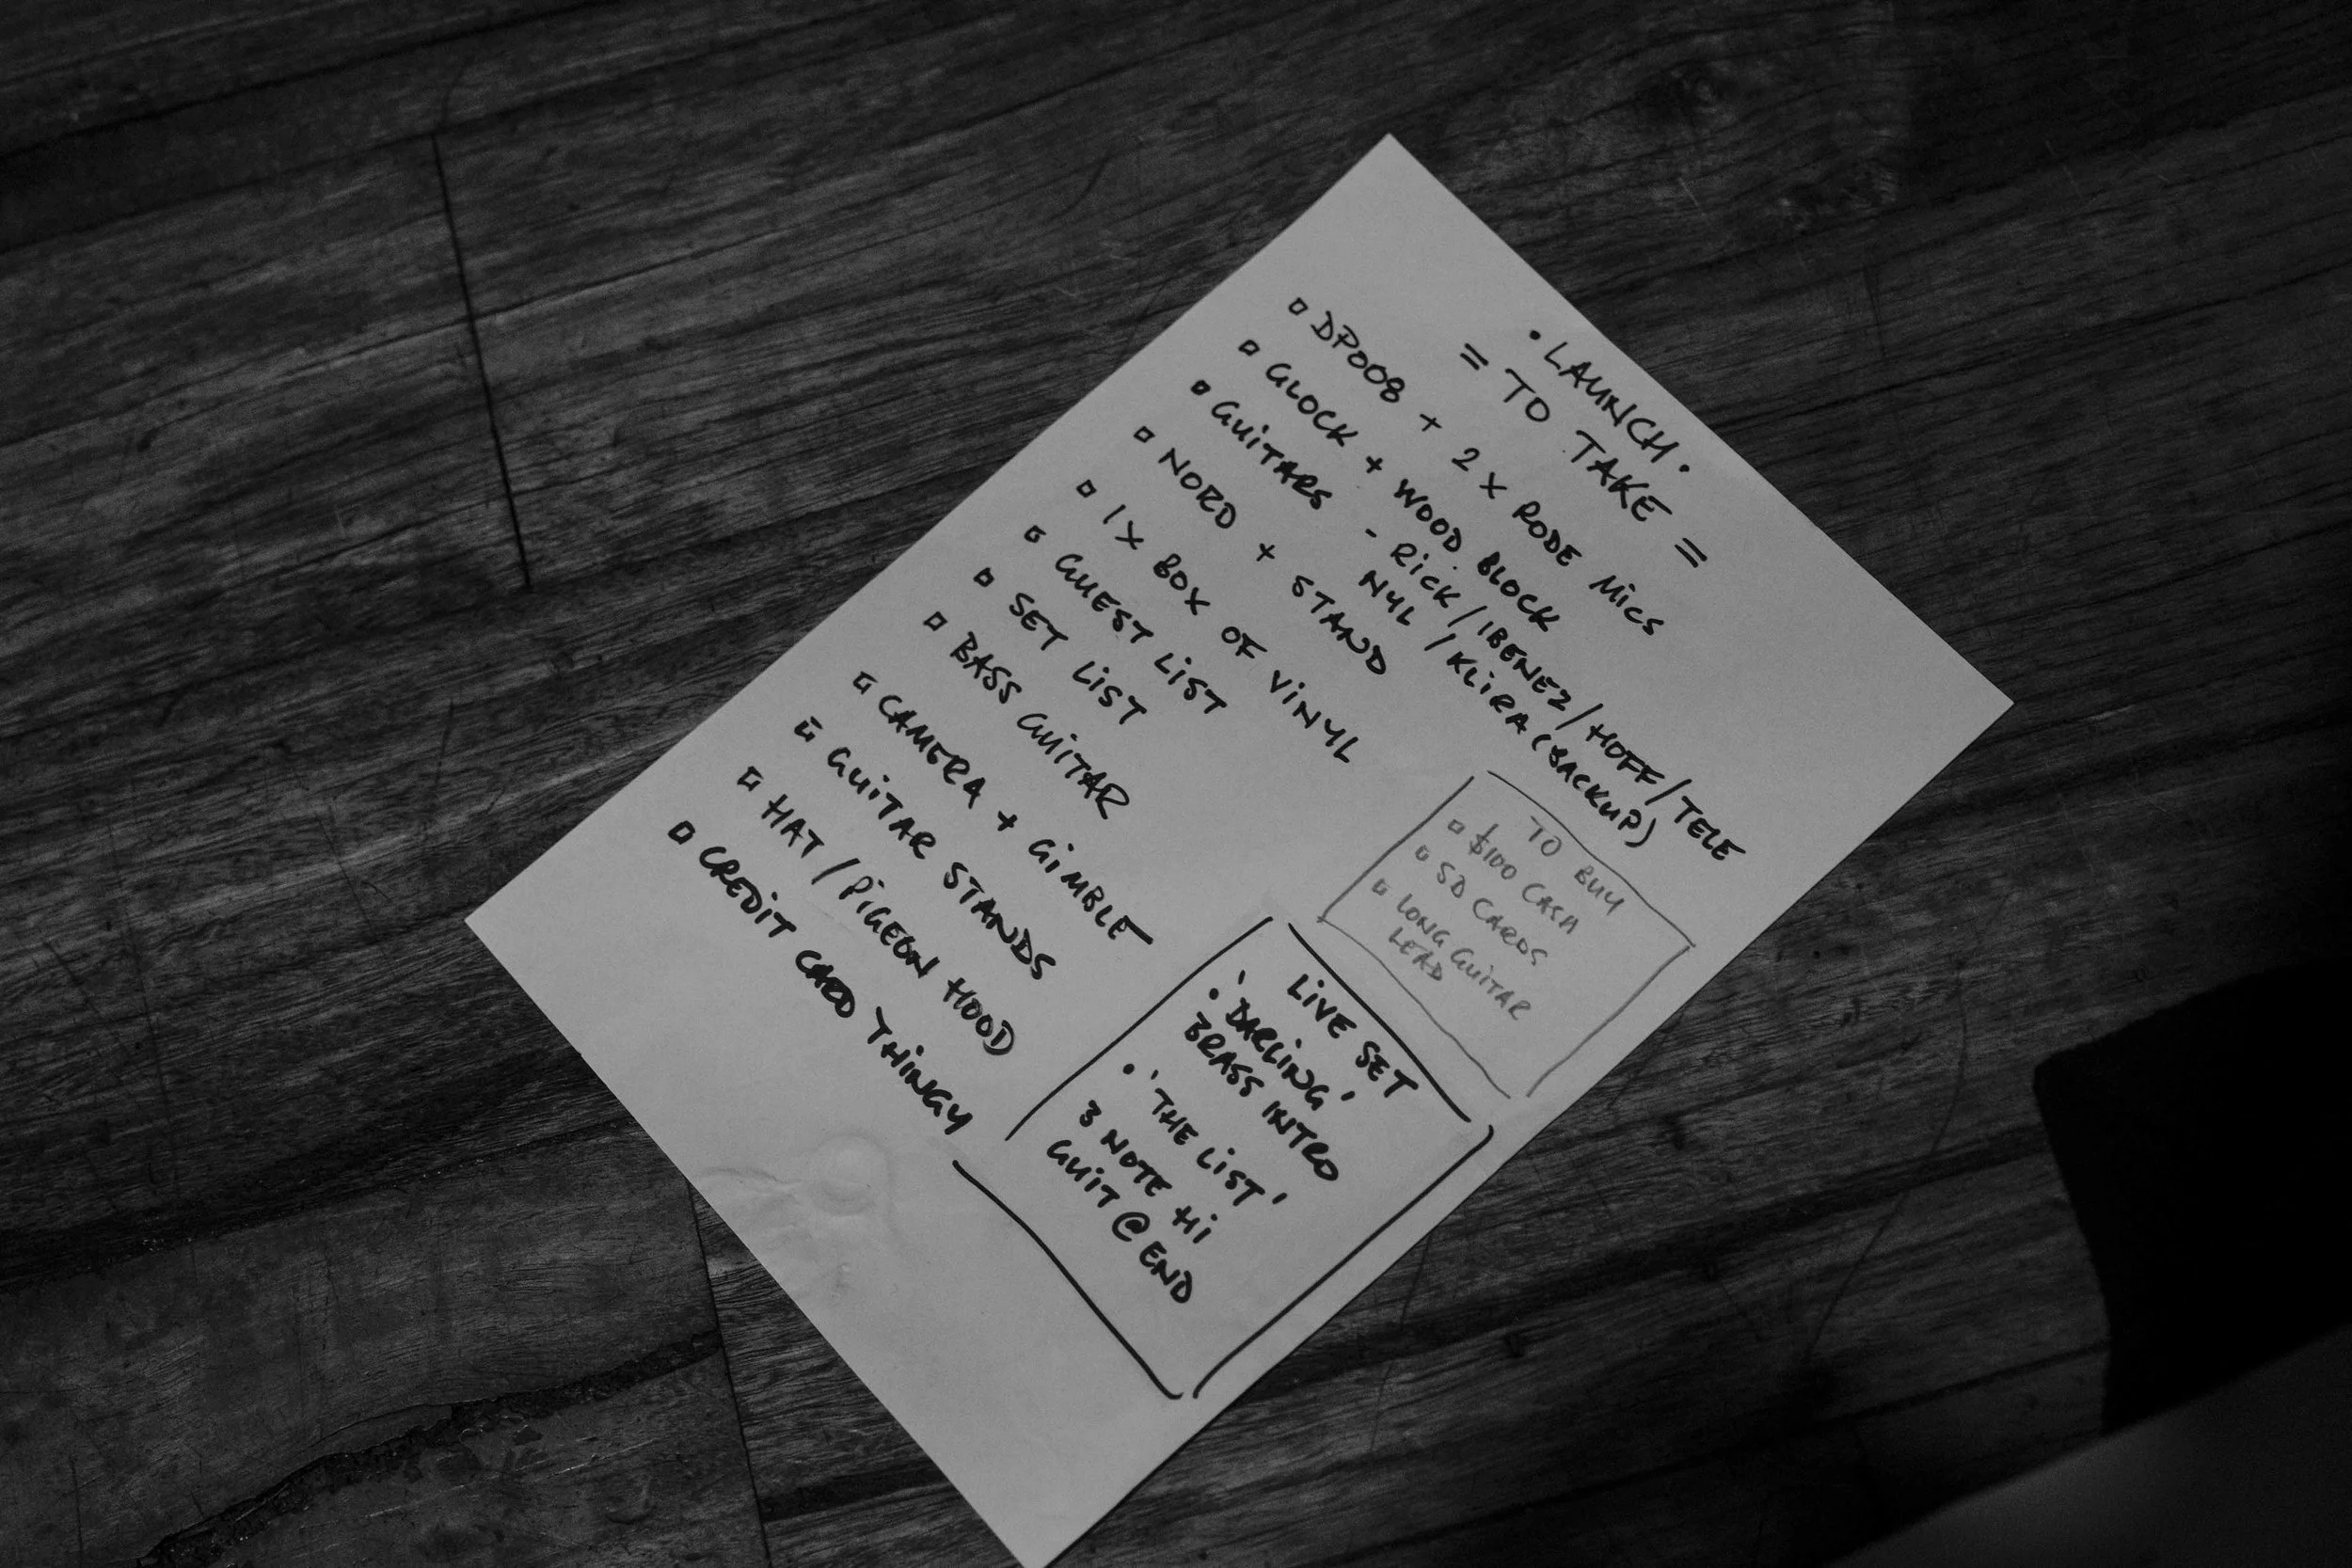 • LAUNCH •
= TO TAKE =
DP008 + 2 X RODE MICS
GLOCK + WOOD BLOCK
GUITARS - RICK/IBENEZ/HOFF/TELE
NYL/KLIRA (BACKUP)
NORD + STAND
1 X BOX OF VINYL
GUEST LIST
SET LIST
BASS GUITAR
CAMERA + GIMBLE
GUITAR STANDS
HAT/PIGEON HOOD
CREDIT CARD THINGY
TO BUY
$100 CASH
SD CARDS
LONG GUITAR
LEAD
LIVE SET
• 'DARLING'
BRASS INTRO
• 'THE LIST'
3 NOTE HI
GUIT @ END